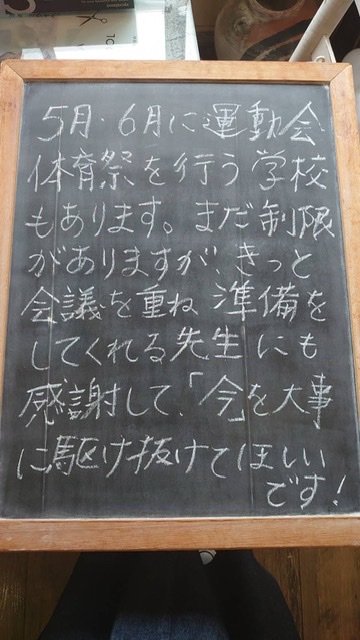 5月・6月に運動会
体育祭を行う学校
もあります。まだ制限
がありますが、きっと
会議を重ね準備を
してくれる先生にも
感謝して、「今」を大事
に駆け抜けてほしい
です!